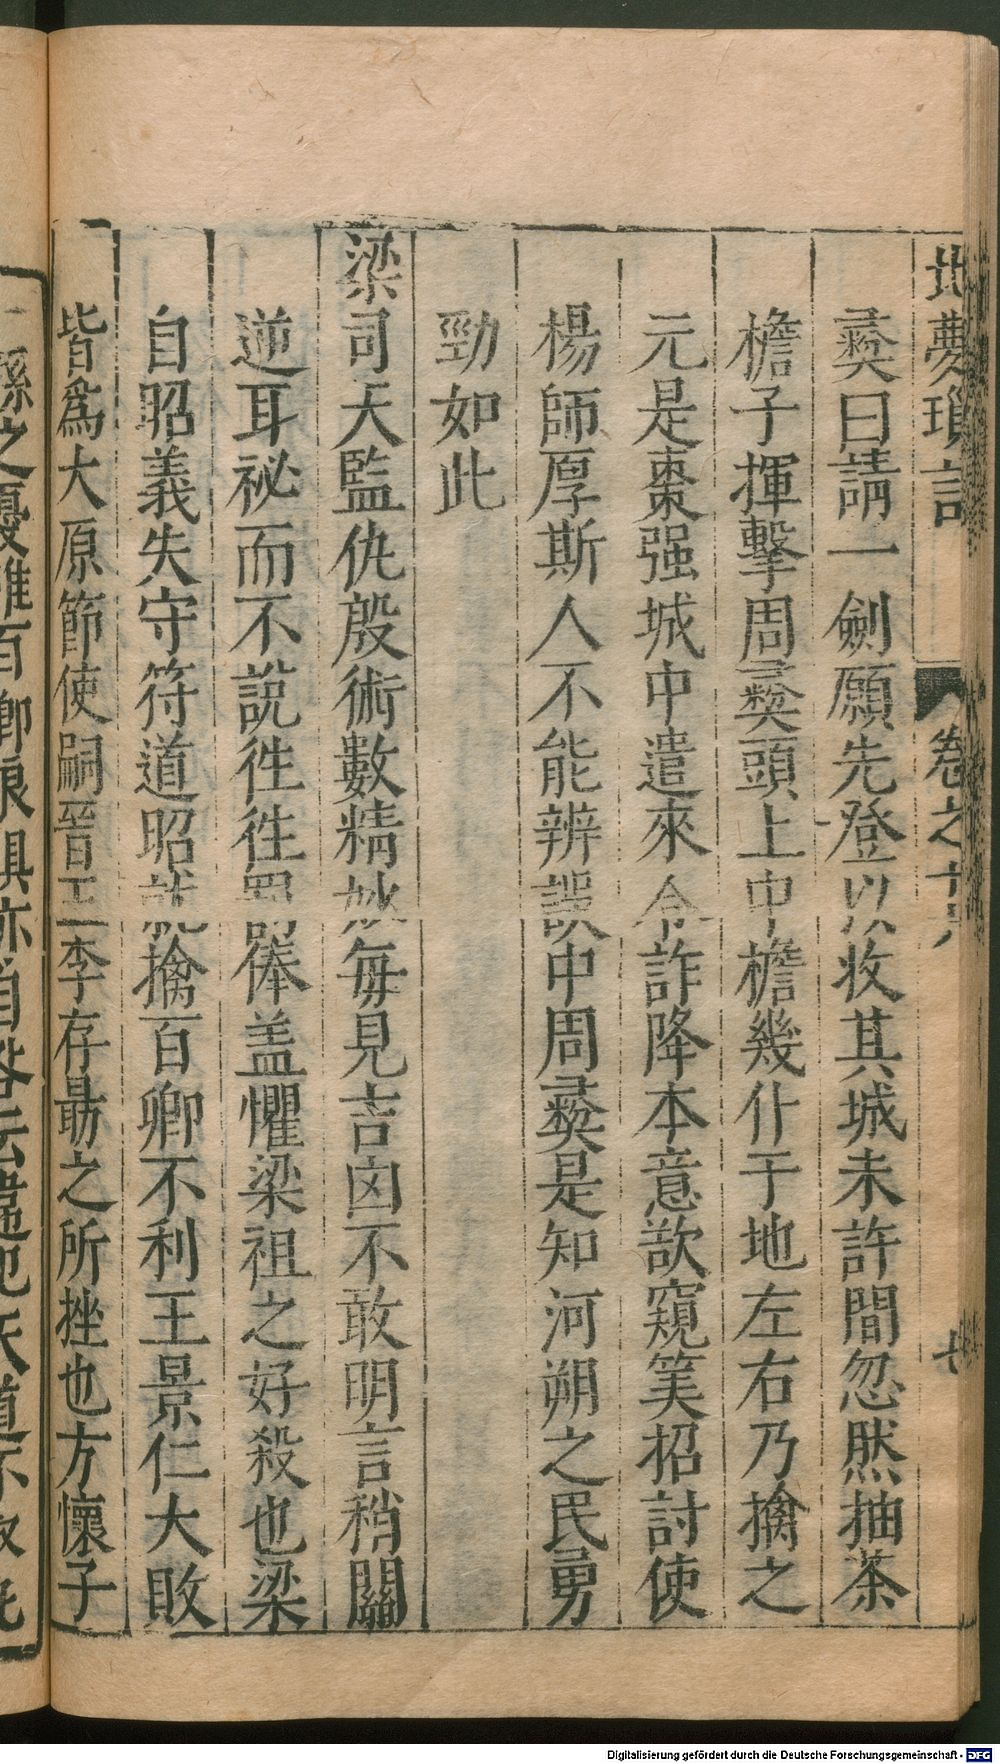 北夢瑣言 卷之十六 七
彝曰請一劍願先登以收其城未許間忽然抽茶
檐子揮擊周彝頭上中檐幾仆于地左右乃擒之
元是棗强城中遣來令詐降本意欲窺筭招討使
楊師厚斯人不能辨誤中周彝是知河朔之民勇
勁如此
梁司天監仇殷術數精妙每見吉凶不敢明言稍關
逆耳祕而不說徃徃罰俸盖懼梁祖之好殺也梁
自昭義失守符道昭就擒百卿不利王景仁大敗
皆爲大原節使嗣晉王李存勗之所挫也方懷子
孫之憂唯百鄉狼狽亦自咎云違犯天道不取
Digitalisierung gefördert durch die Deutsche Forschungsgemeinschaft - DFG